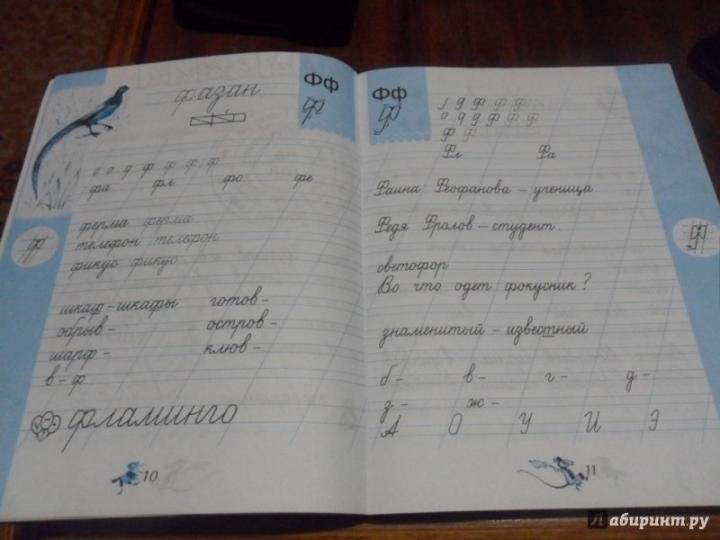 Фф
ф
фазан
о о 9 ф ф ф ф
фа фл фо фе
ферма ферма
телефон телефон
фикус фикус
шкаф - шкафы готов -
обрыв - остров -
шарф - клюв -
в - ф
фламинго
ф
10
Фф
Ф
ф ф ф
ф ф ф
Ф Ф
Фл Фа
Фаина Феофанова - ученица
Федя Фролов - студент.
светофор
Во что одет фокусник?
знаменитый - известный
б - в - г - д -
з - ж -
А О У И Э
Ф
11
Лабиринт.ру